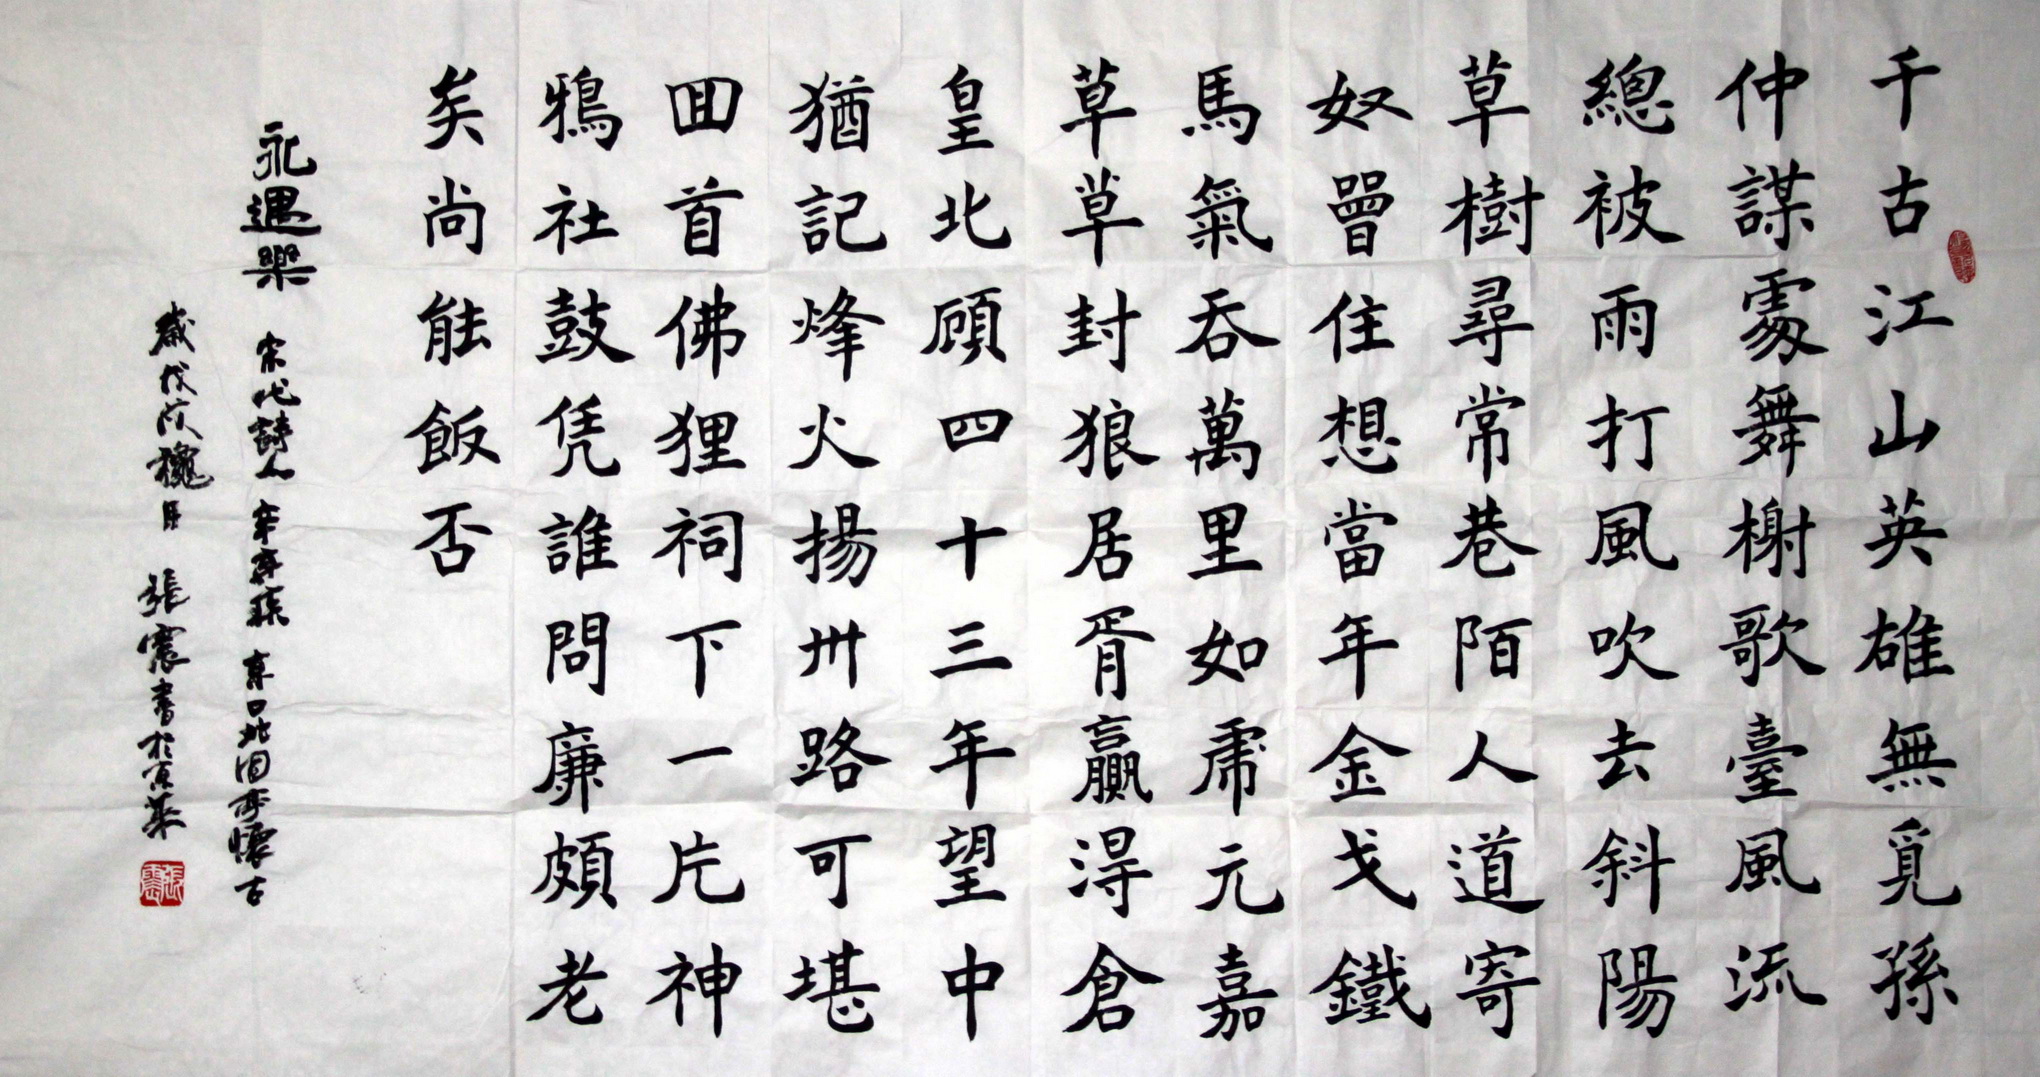 千古江山英雄無覓孫
仲謀處舞榭歌臺風流
總被雨打風吹去斜陽
草樹尋常巷陌人道寄
奴曾住想當年金戈鐵
馬氣吞萬里如虎元嘉
草草封狼居胥贏得倉
皇北顧四十三年望中
猶記烽火揚州路可堪
回首佛狸祠下一片神
鴉社鼓凭誰問廉頗老
矣尚能飯否
永遇樂 宋代詩人 辛棄疾 京口北固亭懷古
歲次戊戌槐月 張震書於
張震